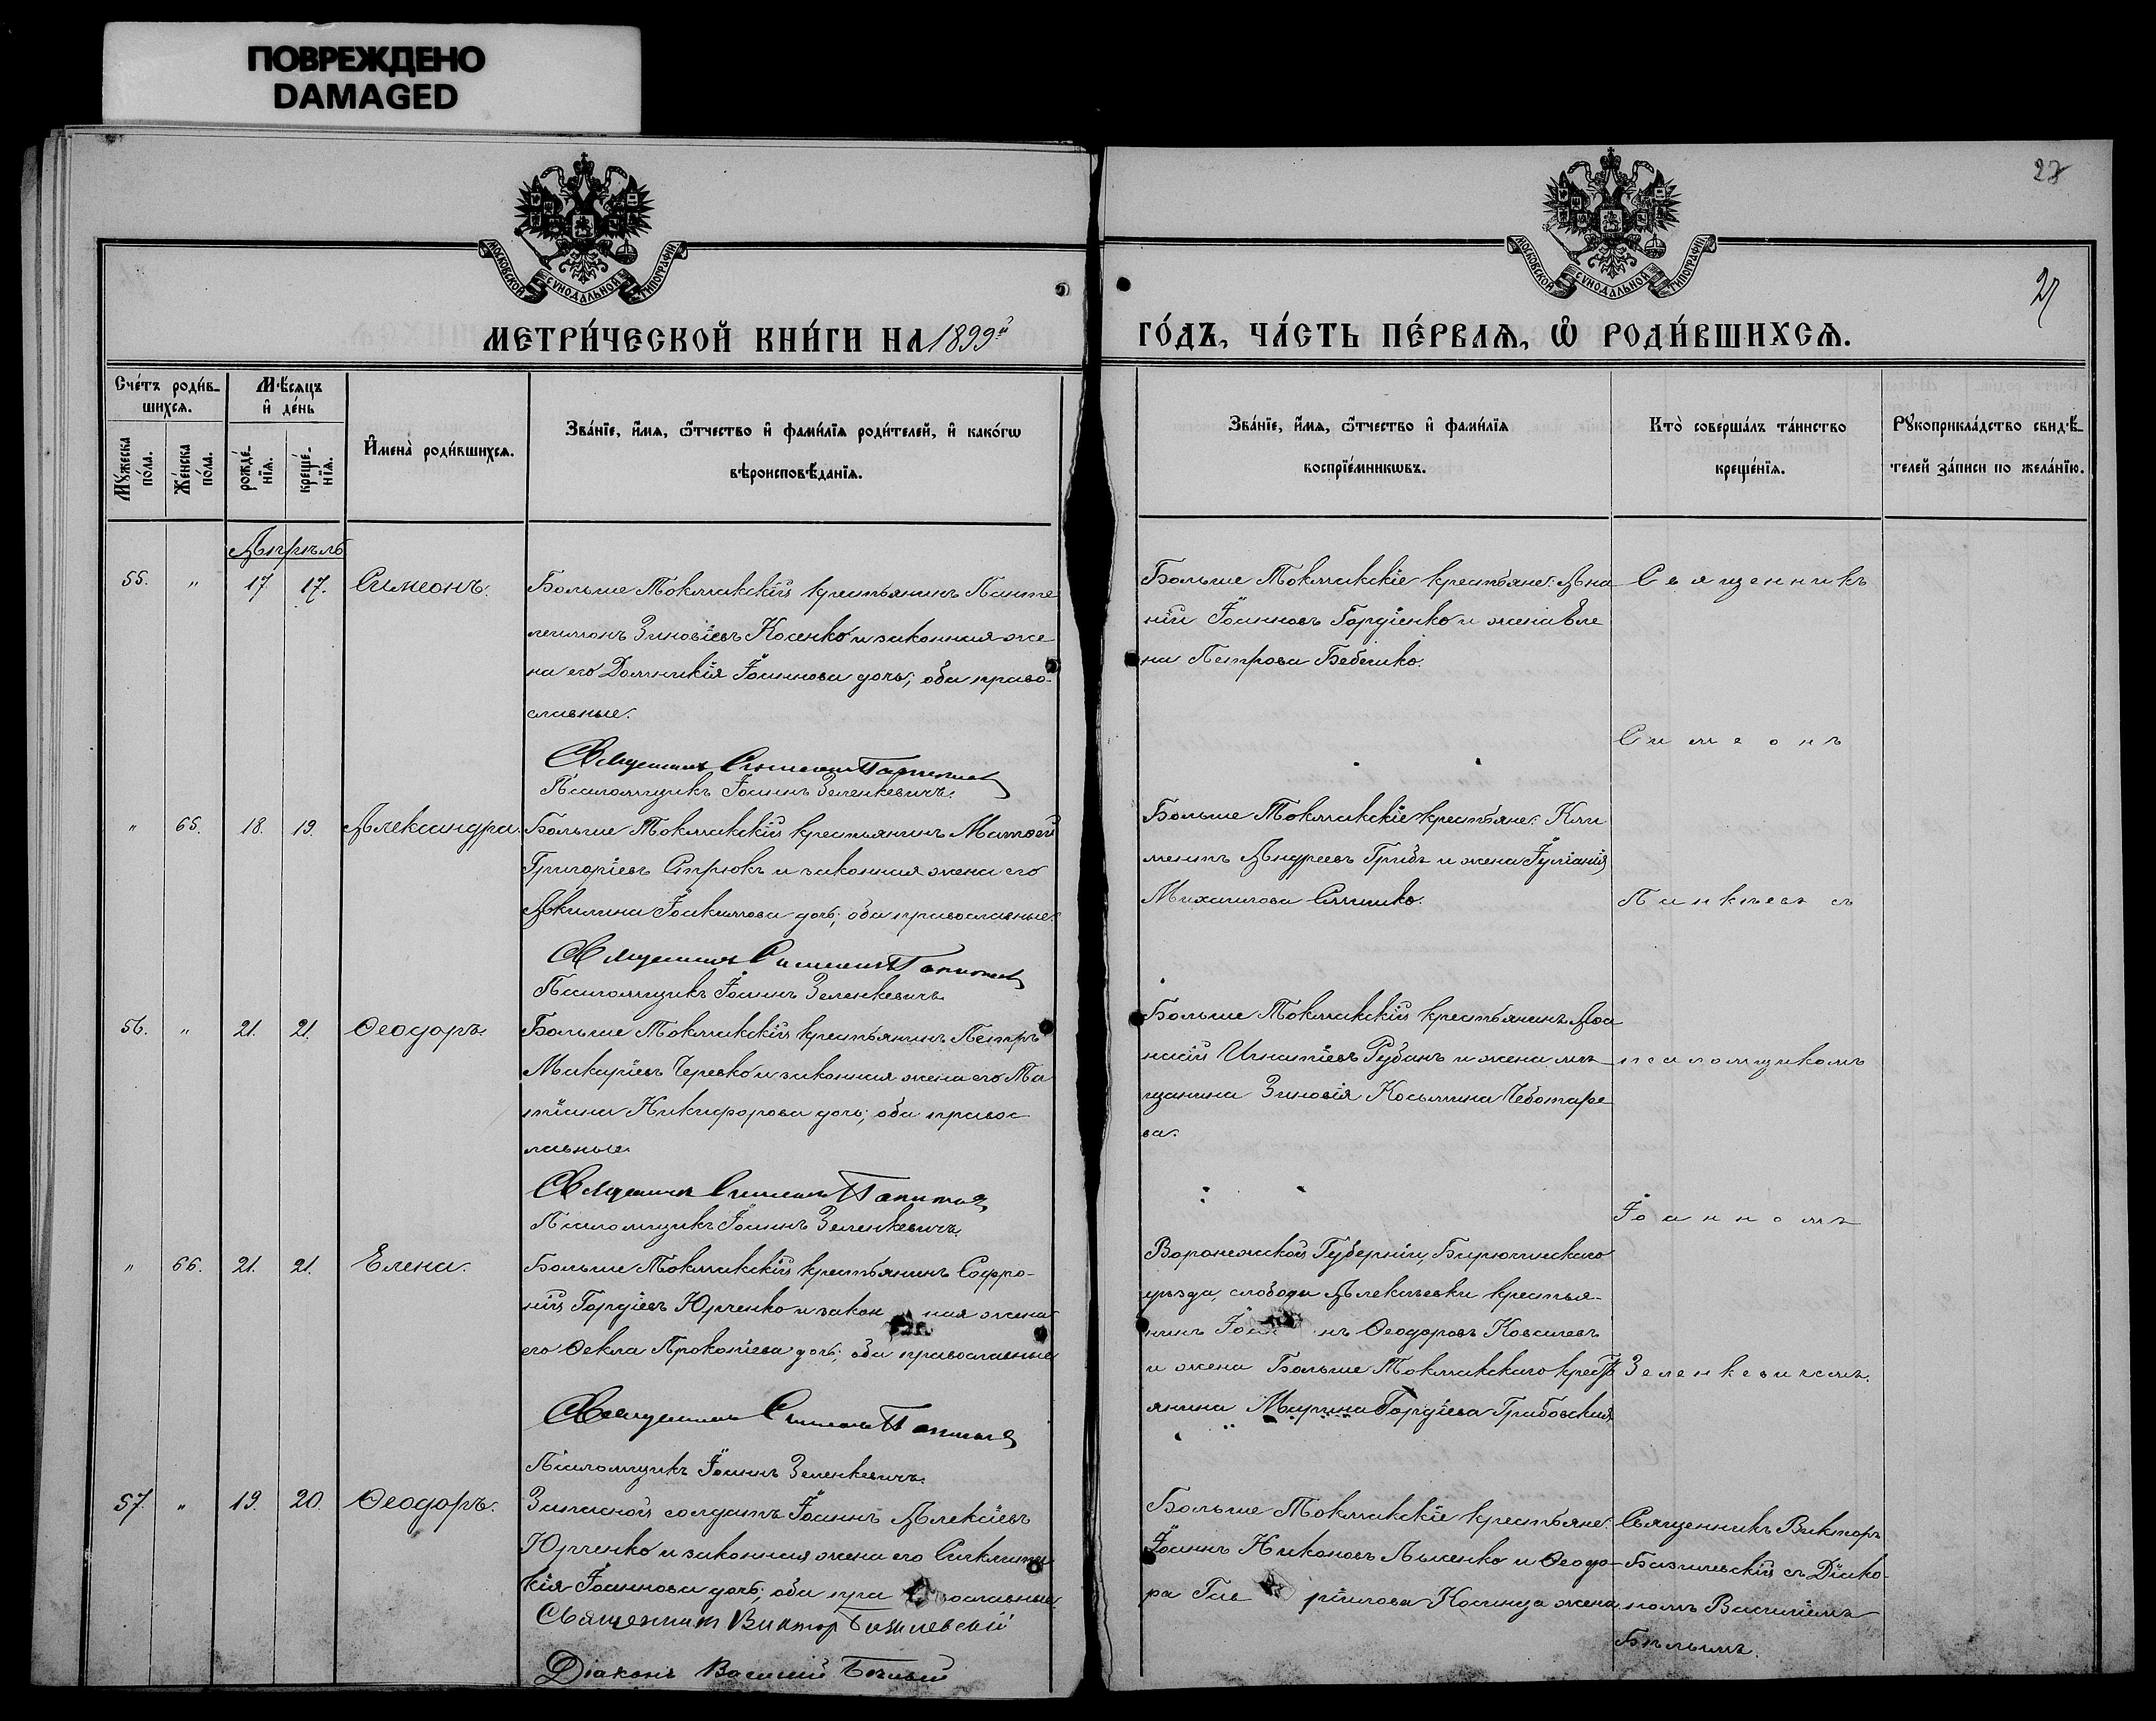 ПОВРЕЖДЕНО
DAMAGED
27
27
МОСКОВСКОЙ СѴНОДАЛЬНОЙ ТИПОГРАФІИ
МОСКОВСКОЙ СѴНОДАЛЬНОЙ ТИПОГРАФІИ
МЕТРИ́ЧЕСКОЙ КНИ́ГИ НА 1899й
ГО́ДЪ, ЧА́СТЬ ПЕ́РВАѦ, Ѡ҆ РОДИ́ВШИХСѦ.
Сче́тъ роди́в-
шихсѧ.
Мꙋ́жеска
по́ла.
Же́нска
по́ла.
Мѣ́сѧцъ
и҆ де́нь
рожде́-
нїѧ.
креще́-
нїѧ.
И҆мена̀ роди́вшихсѧ.
Зва́нїе, и҆́мѧ, ѻ҆́тчество и҆ фами́лїѧ роди́телей, и҆ како́гѡ
вѣроисповѣ́данїѧ.
Зва́нїе, и҆́мѧ, ѻ҆́тчество и҆ фами́лїѧ
воспрїе́мникѡвъ.
Кто̀ соверша́лъ та́инство
креще́нїѧ.
Рꙋкоприкла́дство свидѣ́-
телей за́писи по жела́нїю.
Апрѣль
55. " 17. 17. Симеонъ.
Больше Токмакскій крестьянинъ Панте
леимонъ Зиновіевъ Косенко и законная же
на его Домникія Іоаннова дочь; оба право-
славные.
Священникъ Симеонъ
Псаломщикъ Іоаннъ Зеленкевичъ.
Больше Токмакскіе крестьяне: Ана
ній Іоанновъ Гордіенко и жена Еле
на Петрова Бебешко.
Священникъ
Симеонъ
" 65. 18. 19. Александра.
Больше Токмакскій крестьянинъ Матѳей
Григоріевъ Стрюкъ и законная жена его
Акилина Іоакимова дочь; оба православные.
Священникъ Симеонъ
Псаломщикъ Іоаннъ Зеленкевичъ.
Больше Токмакскіе крестьяне: Кли
ментъ Андреевъ Грибъ и жена Іуліанія
Михаилова
съ
56. " 21. 21. Ѳеодоръ.
Больше Токмакскій крестьянинъ Петръ
Макаріевъ Черевко и законная жена его Та
тіана Никифорова дочь; оба правос
лавные.
Священникъ Симеонъ
Псаломщикъ Іоаннъ Зеленкевичъ.
Больше Токмакскій крестьянинъ Аѳа
насій Игнатіевъ Рубанъ и жена мѣ
щанина Зиновія Косьмина Чеботаре
ва.
псаломщикомъ
Іоанномъ
" 66. 21. 21. Елена.
Больше Токмакскій крестьянинъ Софро-
ній Гордіевъ Юрченко и закон ная жена
его Ѳекла Прокопіева дочь; оба православные
Священникъ Симеонъ
Псаломщикъ Іоаннъ Зеленкевичъ.
Воронежской Губерніи, Бирюченскаго
уѣзда, слободы Алексѣевки крестья-
нинъ Іоан нъ Ѳеодоровъ Ковалевъ
и жена Больше Токмакскаго кресть
янина Марина Гордіева Грибовская
Зеленкевичемъ.
57. " 19. 20. Ѳеодоръ.
Запасной солдатъ Іоаннъ Алексіевъ
Юрченко и законная жена его Синклити
кія Іоаннова дочь; оба пра вославные.
Священникъ Викторъ Базилевскій
Діаконъ Василій Бѣлый
Больше Токмакскіе крестьяне:
Іоаннъ Никоновъ Лысенко и Ѳеодо-
ра Гав ріилова Косинда жена.
Священникъ Викторъ
Базилевскій съ Діако-
номъ Василіемъ
Бѣлымъ.